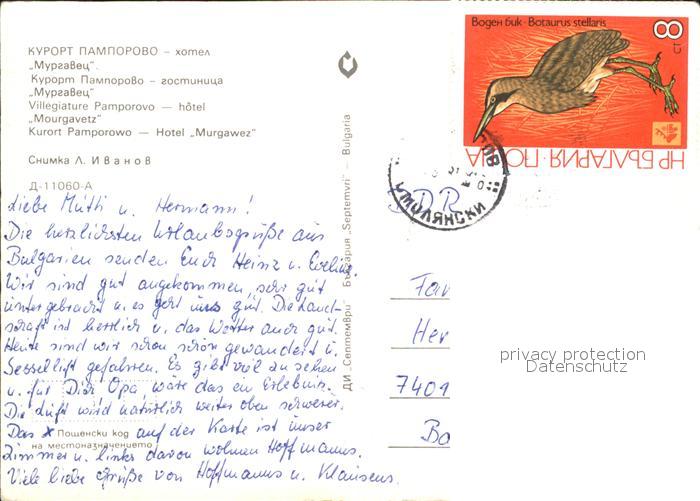 КУРОРТ ПАМПОРОВО – хотел
„Мургавец".
Курорт Пампорово – гостиница
„Мургавец"
Villegiature Pamporovo — hôtel
„Mourgavetz"
Kurort Pamporowo — Hotel „Murgawez"
Снимка Л. Иванов
Д-11060-А
Liebe Mutti u. Hermann!
Die herzlichsten Urlaubsgrüße aus
Bulgarien senden Euch Heinz u. Eveline.
Wir sind gut angekommen, sehr gut
untergebracht u. es geht uns gut. Die Land-
schaft ist herrlich u. das Wetter auch gut.
Heute sind wir schon schön gewandert u.
Sessellift gefahren. Es gibt viel zu sehen
u. für Dich Opa, wäre das ein Erlebnis.
Die Luft wird natürlich weiter oben schwerer.
Das x auf der Karte ist unser
Zimmer u. links davon wohnen Hoffmanns.
Viele liebe Grüße von Hoffmanns u. Klausens.
Пощенски код
на местоназначението
ДИ „Септември" България „Septemvri" - Bulgaria
Воден бик · Botaurus stellaris
8 СТ
НР БЪЛГАРИЯ · ПОЩА
СМОЛЯНСКИ
DDR
Her
7401
privacy protection
Datenschutz